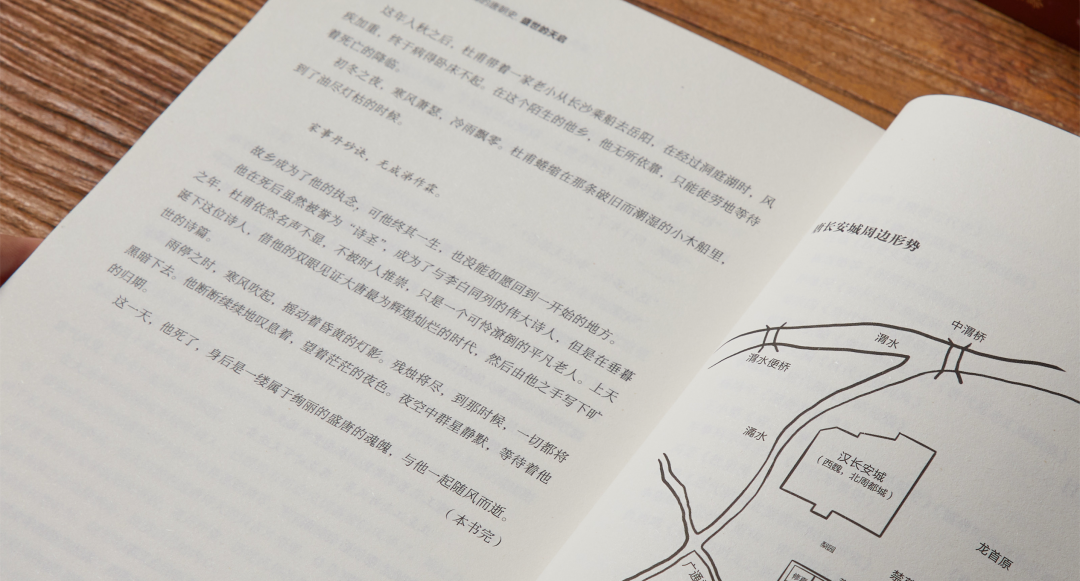 盛世的天启
这年入秋之后，杜甫带着一家老小从长沙乘船去岳阳，在经过洞庭湖时，风
疾加重，终于病得卧床不起。在这个陌生的他乡，他无所依靠，只能徒劳地等待
着死亡的降临。
初冬之夜，寒风萧瑟，冷雨飘零。杜甫蜷缩在那条破旧而潮湿的小木船里，
到了油尽灯枯的时候。
家事丹砂诀，无成涕作霖。
故乡成为了他的执念，可他终其一生，也没能如愿回到一开始的地方。
他在死后虽然被誉为“诗圣”，成为了与李白同列的伟大诗人，但是在垂暮
之年，杜甫依然名声不显，不被时人推崇，只是一个可怜潦倒的平凡老人。上天
诞下这位诗人，借他的双眼见证大唐最为辉煌灿烂的时代，然后由他之手写下旷
世的诗篇。
雨停之时，寒风吹起，摇动着昏黄的灯影。残烛将尽，到那时候，一切都将
黑暗下去。他断断续续地叹息着，望着茫茫的夜色。夜空中群星静默，等待着他
的归期。
这一天，他死了，身后是一缕属于绚丽的盛唐的魂魄，与他一起随风而逝。
（本书完）
长安城周边形势
中渭桥
渭水
渭水便桥
潏水
汉长安城
（西魏，北周都城）
梨园
龙首原
禁苑
广通